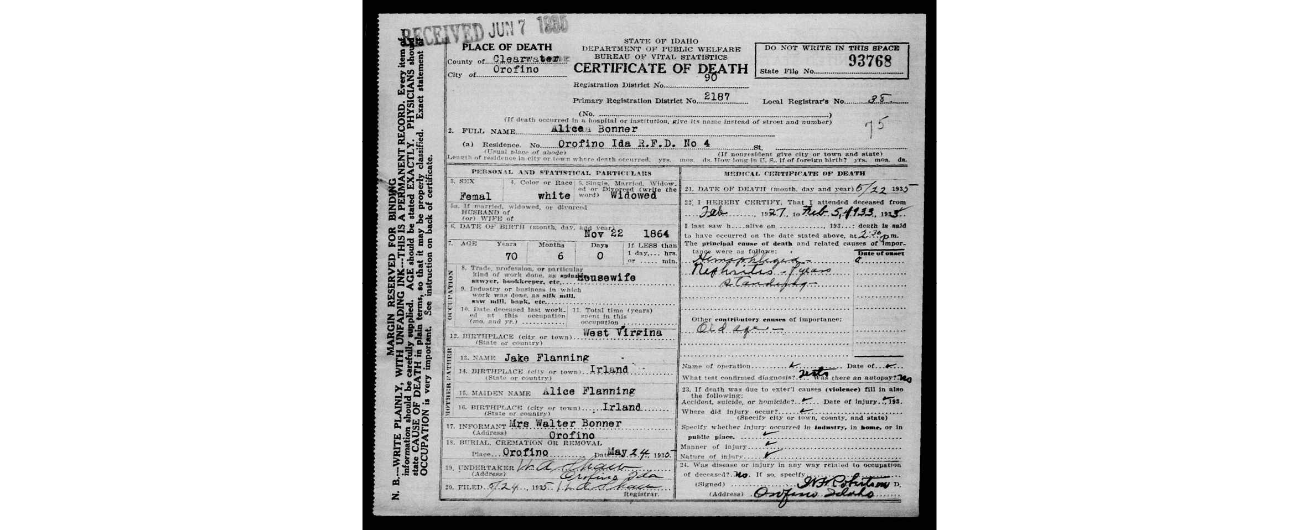 RECEIVED JUN 7 1935
MARGIN RESERVED FOR BINDING
N. B.—WRITE PLAINLY, WITH UNFADING INK—THIS IS A PERMANENT RECORD. Every item of
information should be carefully supplied. AGE should be stated EXACTLY. PHYSICIANS should
state CAUSE OF DEATH in plain terms, so that it may be properly classified. Exact statement of
OCCUPATION is very important. See instruction on back of certificate.
PLACE OF DEATH
County of Clearwater
City of Orofino
STATE OF IDAHO
DEPARTMENT OF PUBLIC WELFARE
BUREAU OF VITAL STATISTICS
CERTIFICATE OF DEATH
DO NOT WRITE IN THIS SPACE
93768
State File No.
Registration District No. 90
Primary Registration District No. 2187 Local Registrar's No. 38
(No. )
(If death occurred in a hospital or institution, give its name instead of street and number)
75
2. FULL NAME Alice Bonner
(a) Residence. No. Orofino Ida R.F.D. No 4 St.
(Usual place of abode) (If nonresident give city or town and state)
Length of residence in city or town where death occurred, yrs. mos. ds. How long in U. S. if of foreign birth? yrs. mos. ds.
PERSONAL AND STATISTICAL PARTICULARS
3. SEX 4. Color or Race 5. Single, Married, Widowed or Divorced (write the word)
Femal white Widowed
5a. If married, widowed, or divorced
HUSBAND of
(or) WIFE of
6. DATE OF BIRTH (month, day, and year) Nov 22 1864
7. AGE Years Months Days If LESS than
70 6 0 1 day, hrs.
or min.
OCCUPATION
8. Trade, profession, or particular
kind of work done, as spinner,
sawyer, bookkeeper, etc. Housewife
9. Industry or business in which
work was done, as silk mill,
saw mill, bank, etc.
10. Date deceased last worked at this occupation (mo. and yr.)
11. Total time (years) spent in this occupation
12. BIRTHPLACE (city or town) West Virgina
(State or country)
FATHER
13. NAME Jake Flanning
14. BIRTHPLACE (city or town) Irland
(State or country)
MOTHER
15. MAIDEN NAME Alice Flanning
16. BIRTHPLACE (city or town) Irland
(State or country)
17. INFORMANT Mrs Walter Bonner
(Address) Orofino
18. BURIAL, CREMATION OR REMOVAL
Place Orofino Date May 24 193
19. UNDERTAKER W A Shaw
(Address) Orofino Ida
20. FILED 5/24, 1935 W A Shaw
Registrar.
MEDICAL CERTIFICATE OF DEATH
21. DATE OF DEATH (month, day and year) 5/22 1935
22. I HEREBY CERTIFY, That I attended deceased from
Feb 1927 to Feb 5, 1933, 193
I last saw h alive on , 193 ; death is said
to have occurred on the date stated above, at m.
The principal cause of death and related causes of importance were as follows: Date of onset
Nephritis - years
standing
Other contributory causes of importance:
Old age
Name of operation Date of
What test confirmed diagnosis? tests Was there an autopsy? No
23. If death was due to exter'l causes (violence) fill in also
the following:
Accident, suicide, or homicide? Date of injury 193
Where did injury occur?
(Specify city or town, county, and state)
Specify whether injury occurred in industry, in home, or in
public place.
Manner of injury
Nature of injury
24. Was disease or injury in any way related to occupation
of deceased? No. If so, specify
(Signed) Robertson D.
(Address) Orofino Idaho